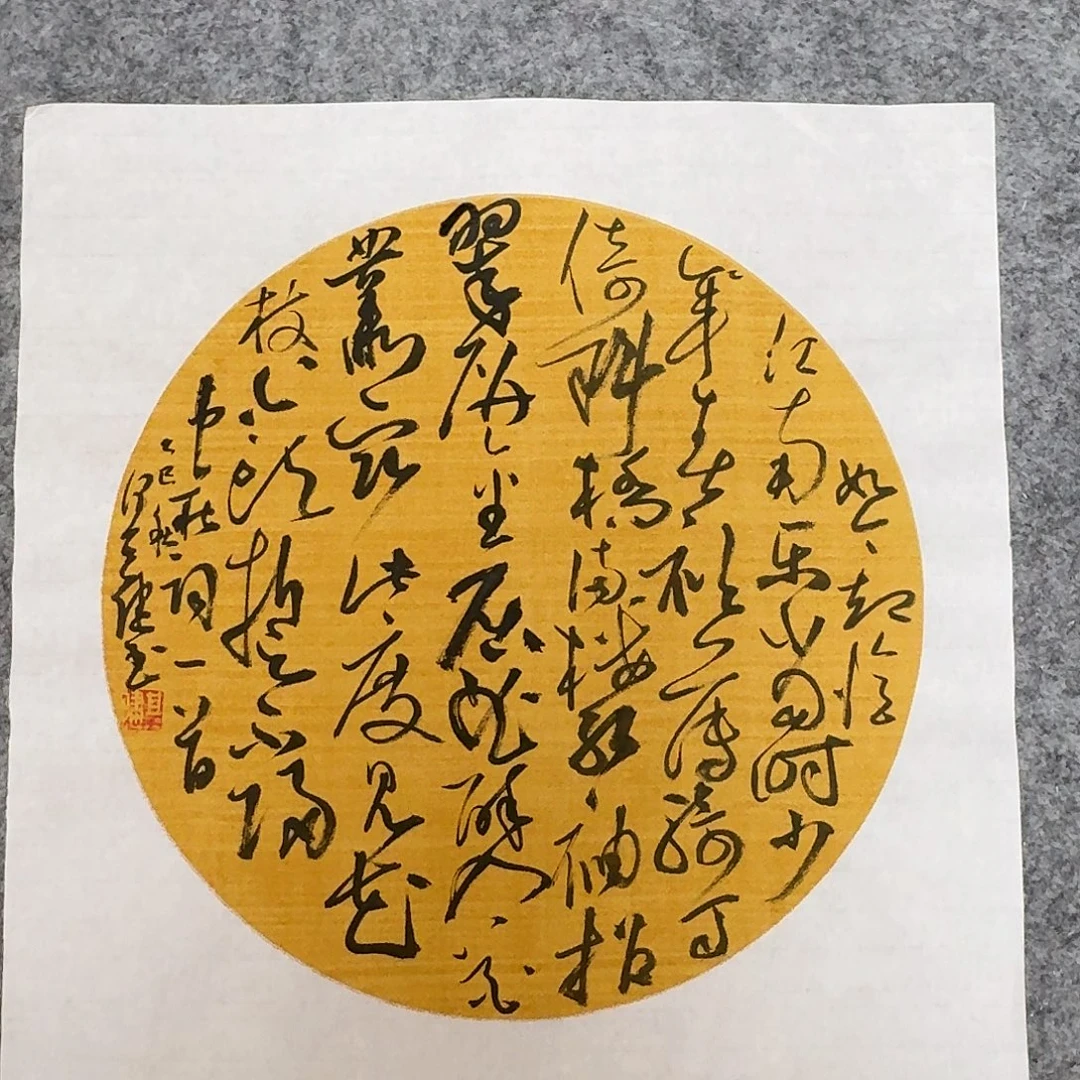 如今却憶
江南乐當时少
年春衫薄骑马
倚斜橋满楼红袖招
翠屏金屈曲醉入花
叢宿此度见花
枝白头誓不歸
韦庄词一首
乙巳秋